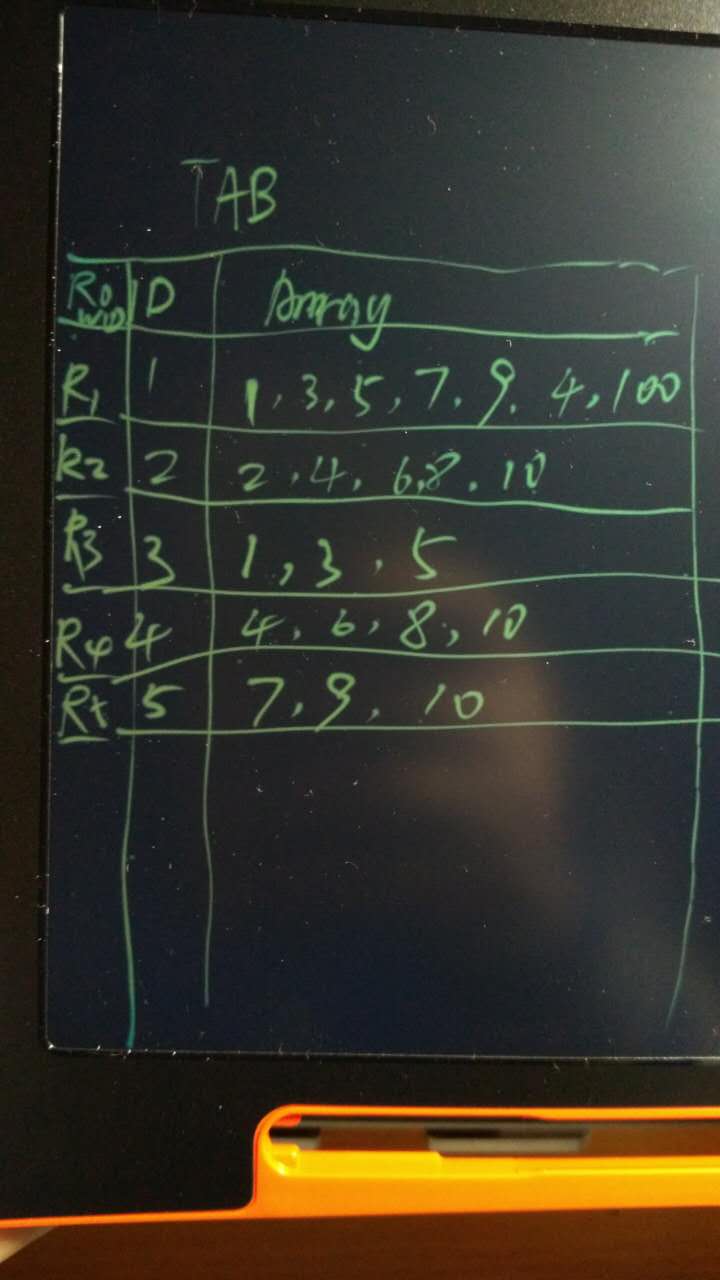 TAB
RowID ID Array
R1 1 1, 3, 5, 7, 9, 4, 100
R2 2 2, 4, 6, 8, 10
R3 3 1, 3, 5
R4 4 4, 6, 8, 10
5 7, 9, 10